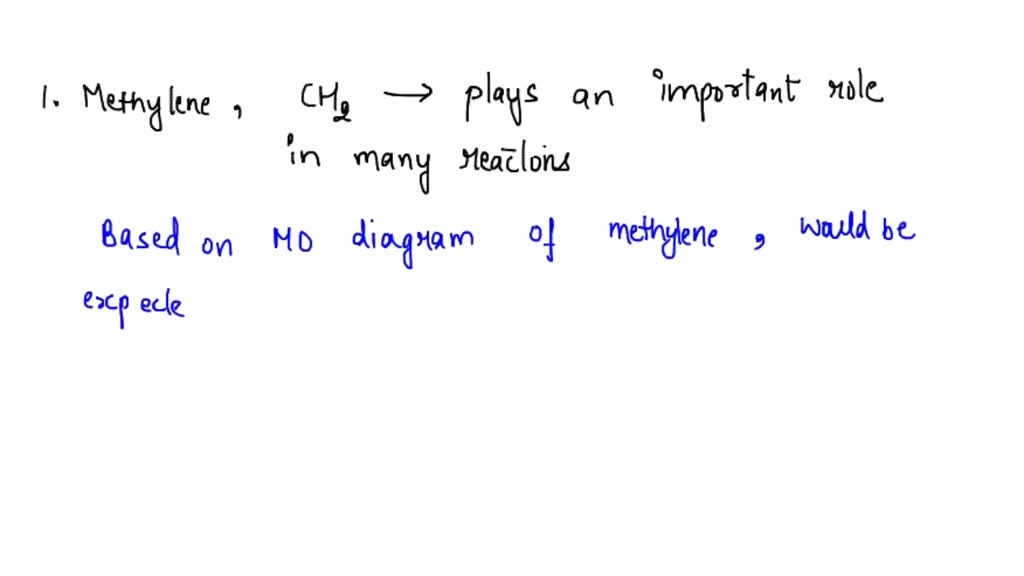 1. Methylene, CH2 → plays an important role
in many reactions
Based on MO diagram of methylene, would be
expecte